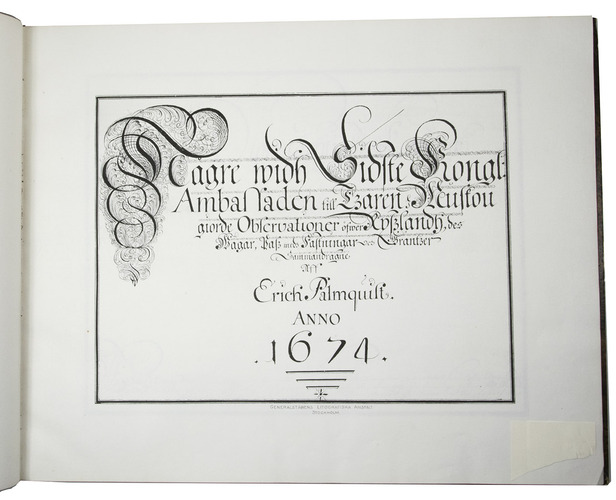 Någre widh Sidste Kongl:
Ambassaden till Tzaren i Muskou
giorde Observationer öfwer Rysslandh, des
Wägar, Pass medh Fästningar och Gräntzer
Sammandragne
Aff
Erich Palmquist.
ANNO
.1674.
GENERALSTABENS LITOGRAFISKA ANSTALT
STOCKHOLM.